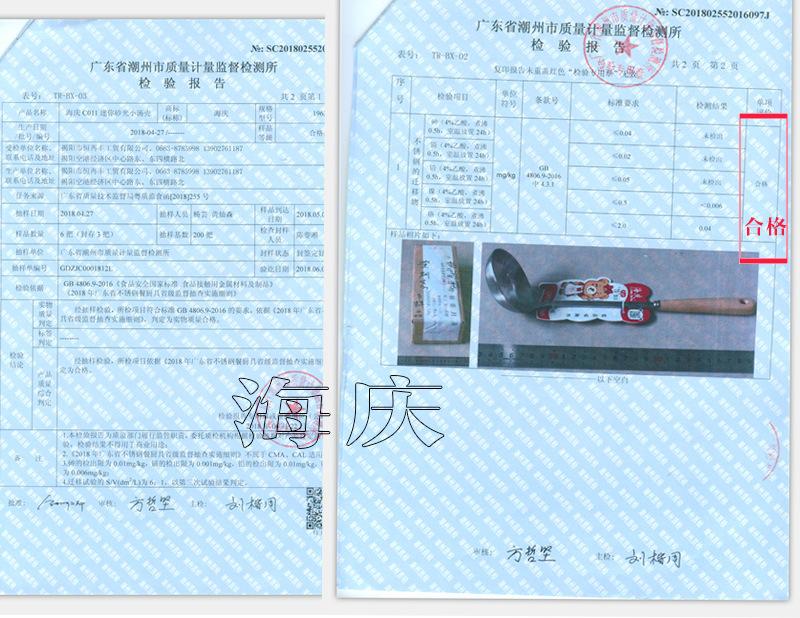 №: SC2018025520
广东省潮州市质量计量监督检测所
检 验 报 告
表号: TR-BX-03
共 2 页 第 1
产品名称 海庆 C011 迷你砂光小汤壳 商标(标称) 海庆 规格型号 196
生产日期/批号 编号 2018-04-27 /------ 样品等级 合格
受检单位名称、联系电话及地址 揭阳市恒再丰工贸有限公司、0663-8785998 13902761187
揭阳空港经济区中心路东、东四横路北
生产单位名称、联系电话及地址 揭阳市恒再丰工贸有限公司、0663-8785998 13902761187
揭阳空港经济区中心路东、东四横路北
任务来源 广东省质量技术监督局粤质监食函[2018]255 号
抽样日期 2018.04.27 抽样人员 杨芸 黄灿森 样品到达日期 2018.05.0
样品数量 6 把(封存3把) 抽样基数 200 把 检查封样人员
抽样单位 广东省潮州市质量计量监督检测所 封样状态 封签完好
抽样单编号 GDZJC00018121 验讫日期 2018.06.0
检验依据 GB 4806.9-2016《食品安全国家标准 食品接触用金属材料及制品》
《2018 年广东省不锈钢餐厨具省级监督抽查实施细则》
检验结论
实物质量判定 经抽样检验,所检项目符合标准 GB 4806.9-2016 的要求。依据《2018 年广东省
具省级监督抽查实施细则》,判定为实物质量合格。
标签判定 --------
产品质量综合判定 经抽样检验,所检项目依据《2018 年广东省不锈钢餐厨具省级监督抽查实施细则
定为合格。
备 注 1.本检验报告为质监部门履行监督职责、委托质检机构根据
验,检验结果不得用于商业用途;
2.《2018 年广东省不锈钢餐厨具省级监督抽查实施细则》不属于 CMA、CAL
3.砷的检出限为 0.01mg/kg,镉的检出限为 0.001mg/kg,铅的检出限为 0.01mg/kg
为 0.006mg/kg;
4.迁移试验的 S/V(dm²/L)为 6:1,以第三次试验结果判定。
批准:
审核: 方哲坚
主检: 刘梅周
№: SC201802552016097J
广东省潮州市质量计量监督检测所
检 验 报 告
表号: TR-BX-02
复印报告未重盖红色“检验专用章”无效
共 2 页 第 2 页
序号 检验项目 单位符号 条款号 标准要求 检测结果 单项评价
1 不锈钢的迁移物 mg/kg GB 4806.9-2016 中 4.3.1 合格
砷(4%乙酸,煮沸 0.5h,室温放置 24h) ≤0.04 未检出
镉(4%乙酸,煮沸 0.5h,室温放置 24h) ≤0.02 未检出
铅(4%乙酸,煮沸 0.5h,室温放置 24h) ≤0.05 未检出
镍(4%乙酸,煮沸 0.5h,室温放置 24h) ≤0.5 <0.006
铬(4%乙酸,煮沸 0.5h,室温放置 24h) ≤2.0 0.04
合格
样品相片如下:
以下空白
海庆
审核: 方哲坚
主检: 刘梅周